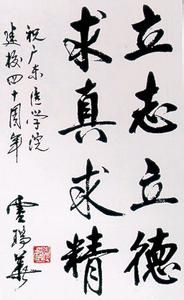 立志立德
求真求精
祝广东医学院
建校四十周年
云瑞英